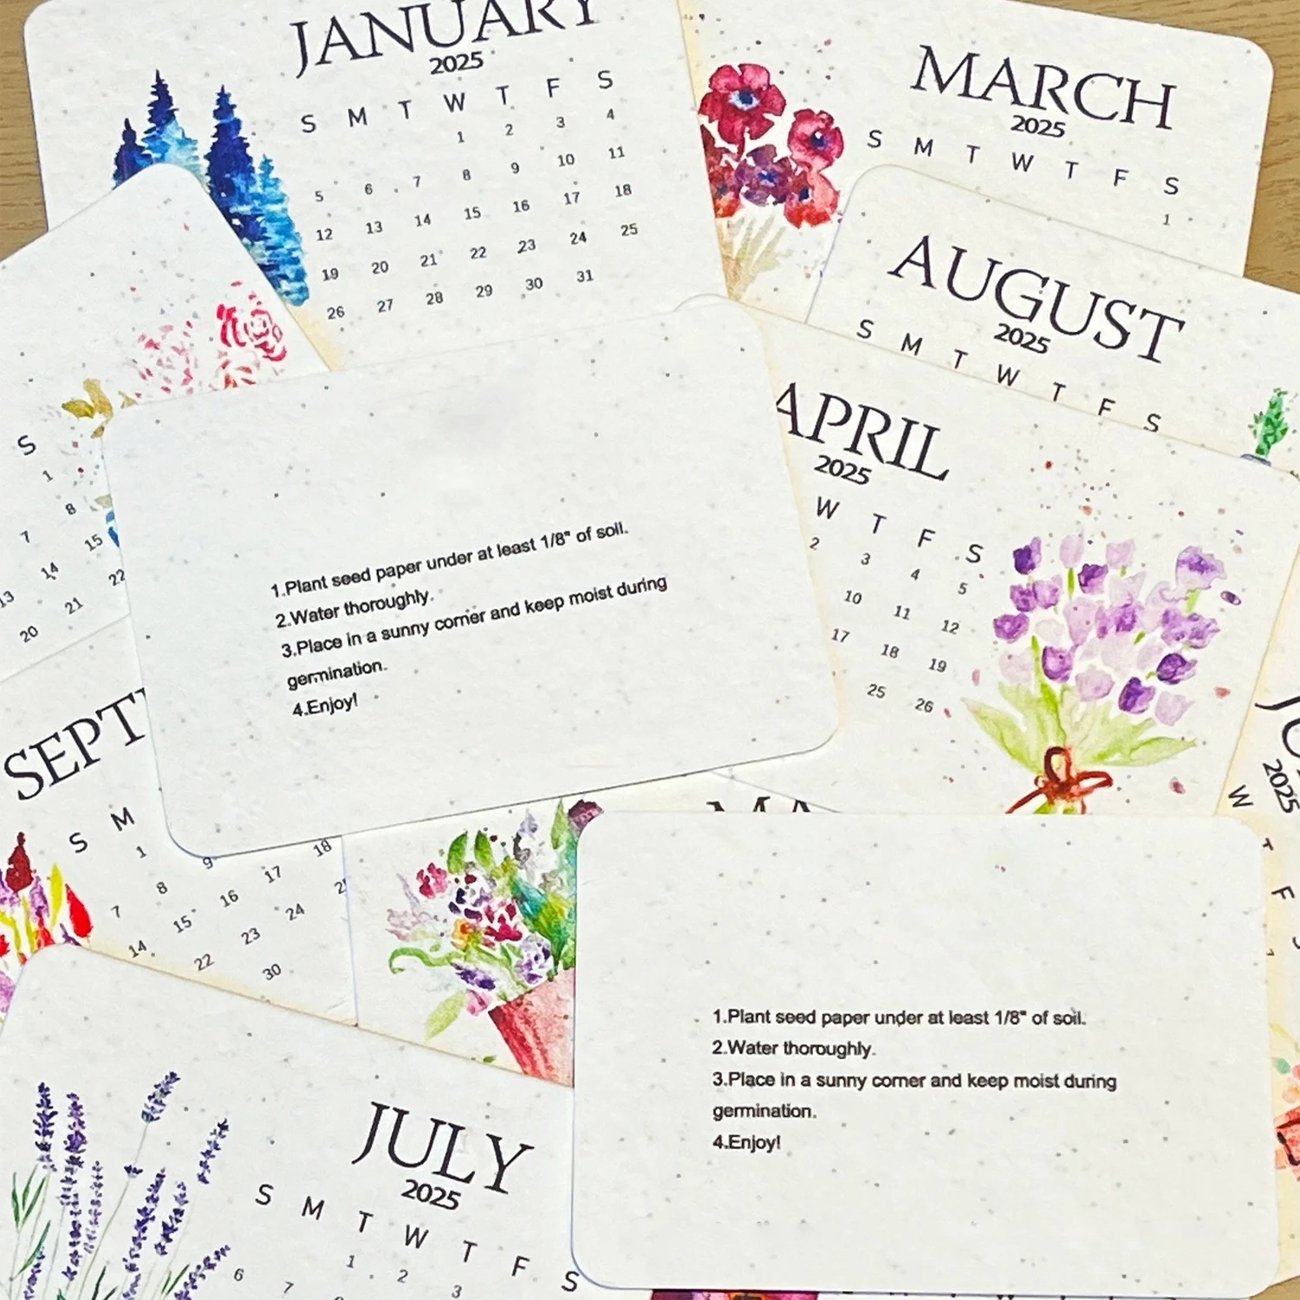 JANUARY
2025
S M T W T F S
1 2 3 4
5 6 7 8 9 10 11
12 13 14 15 16 17 18
19 20 21 22 23 24 25
26 27 28 29 30 31
MARCH
2025
S M T W T F S
1
AUGUST
2025
S M T W T F S
APRIL
2025
W T F S
2 3 4 5
10 11 12
17 18 19
25 26
S
1
7 8
13 14 15
20 21 22
1.Plant seed paper under at least 1/8" of soil.
2.Water thoroughly.
3.Place in a sunny corner and keep moist during
germination.
4.Enjoy!
SEPT
S M
1
7 8 9
14 15 16 17 18
22 23 24
30
MA
2025
W T F
1.Plant seed paper under at least 1/8" of soil.
2.Water thoroughly.
3.Place in a sunny corner and keep moist during
germination.
4.Enjoy!
JULY
2025
S M T W T F S
1 2 3
6 7